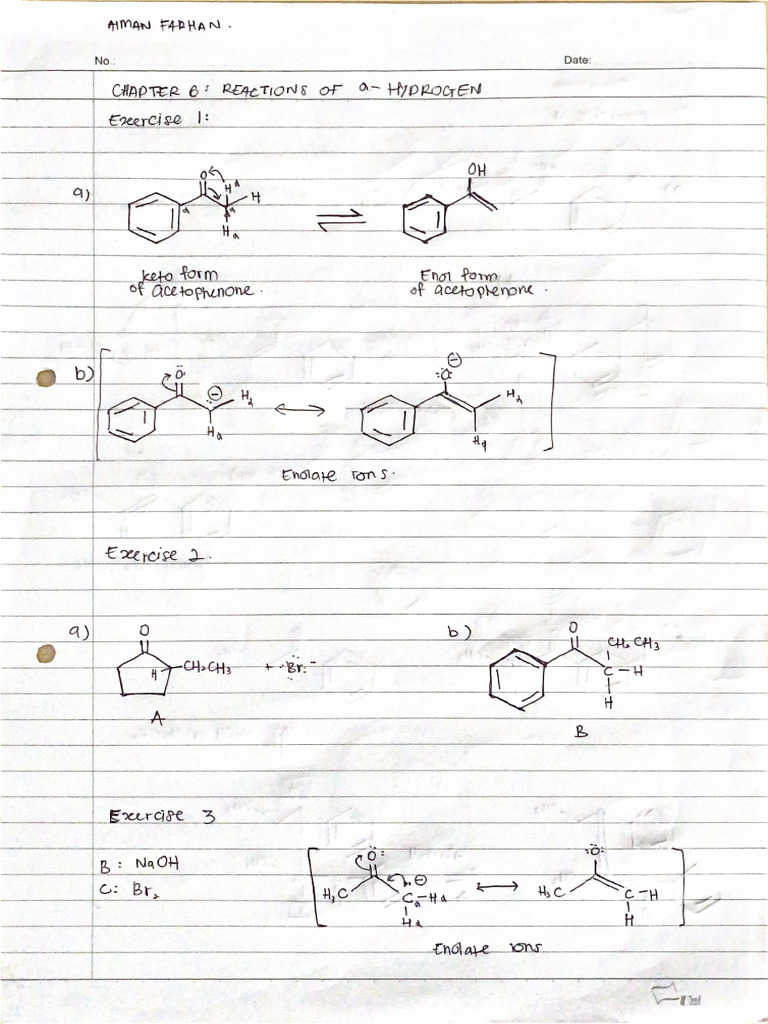 AIMAN FARHAN.
No.: Date:
CHAPTER 6: REACTIONS OF α-HYDROGEN
Exercise 1:
a)
O Hα H α α Hα
OH
keto form Enol form
of acetophenone. of acetophenone.
b)
:Ö ⊖ Hα Hα
⊖ :Ö: Hα Hα
Enolate ions.
Exercise 2.
a) O H CH₂CH₃ + :Br:⁻
A
b) O CH₂CH₃ C-H H
B
Exercise 3
B: NaOH
C: Br₂
O: H₃C ⊖ Cα-Hα Hα
:O: H₃C C-H H
Enolate ions